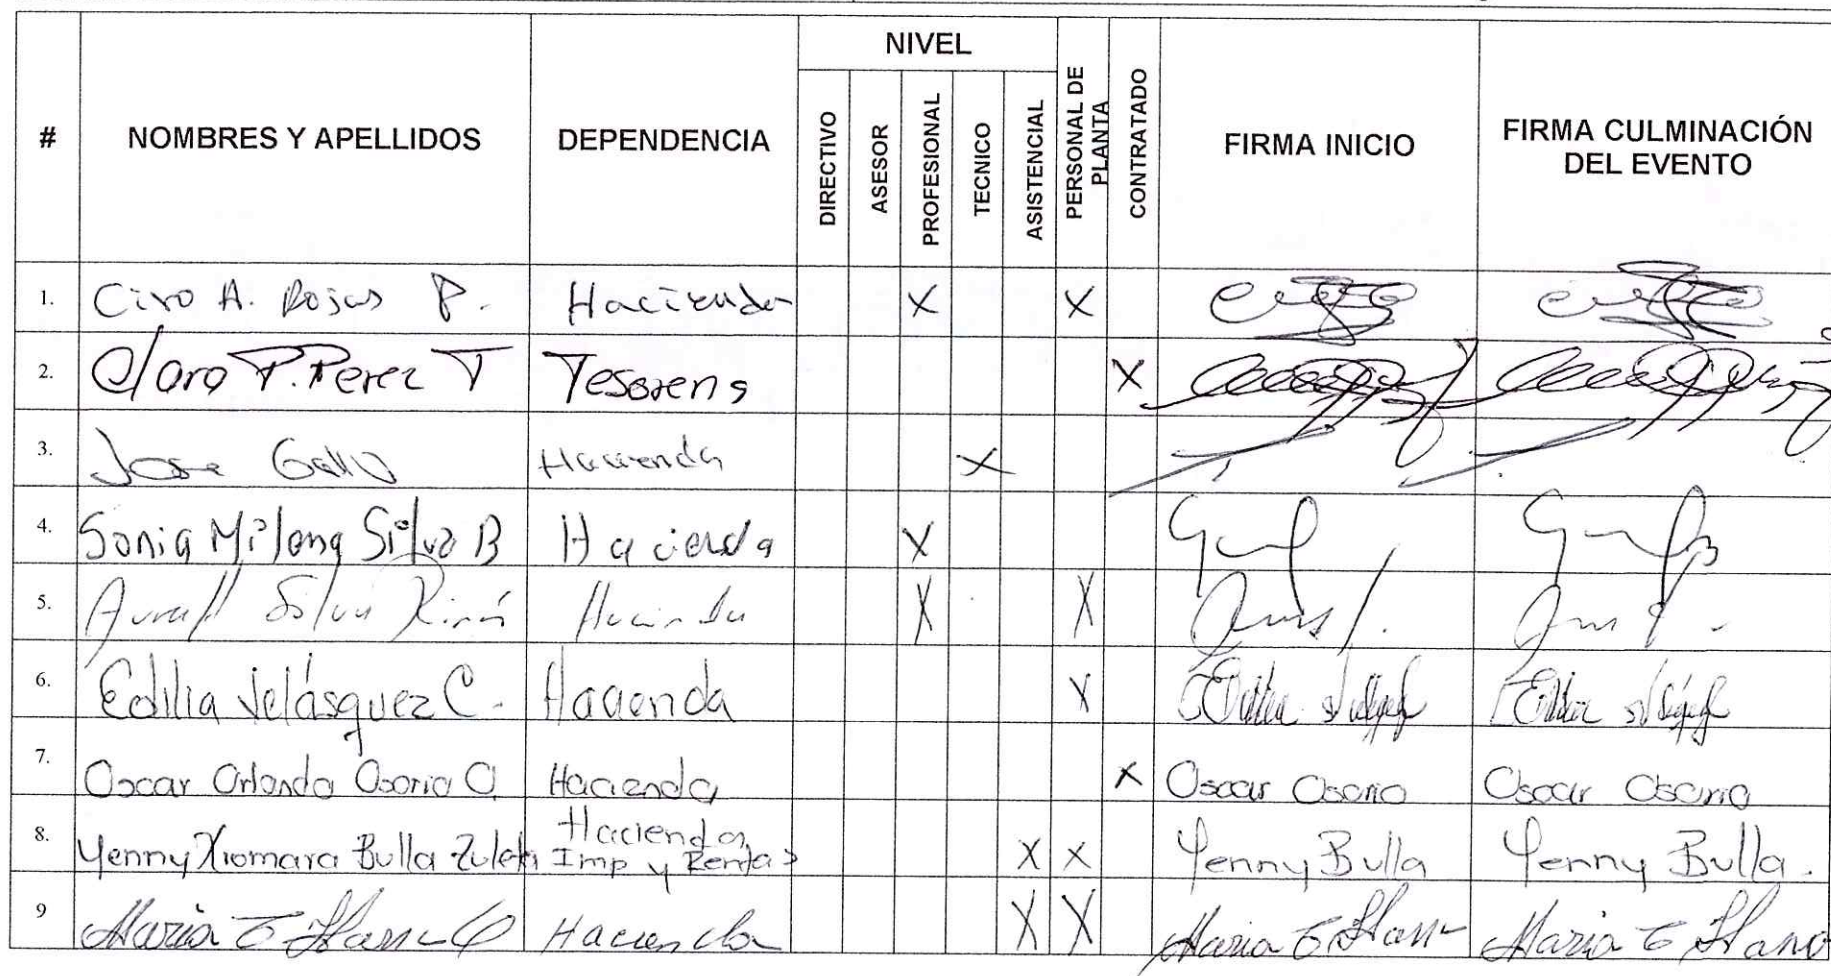 #
NOMBRES Y APELLIDOS
DEPENDENCIA
NIVEL
DIRECTIVO
ASESOR
PROFESIONAL
TECNICO
ASISTENCIAL
PERSONAL DE
PLANTA
CONTRATADO
FIRMA INICIO
FIRMA CULMINACIÓN
DEL EVENTO
1. Ciro A. Rojas P. Hacienda X X
2. Clara P. Perez T Tesoreria X
3. Jose Gallo Hacienda X
4. Sonia Milena Silva B Hacienda X
5. Silva Hacienda X X
6. Edilia Velásquez C. Hacienda X
7. Oscar Orlando Osorio O Hacienda X Oscar Osorio Oscar Osorio
8. Yenny Xiomara Bulla Zuleta Hacienda, Imp y Rentas X X Yenny Bulla Yenny Bulla.
9 Maria Hacienda X X Maria Maria